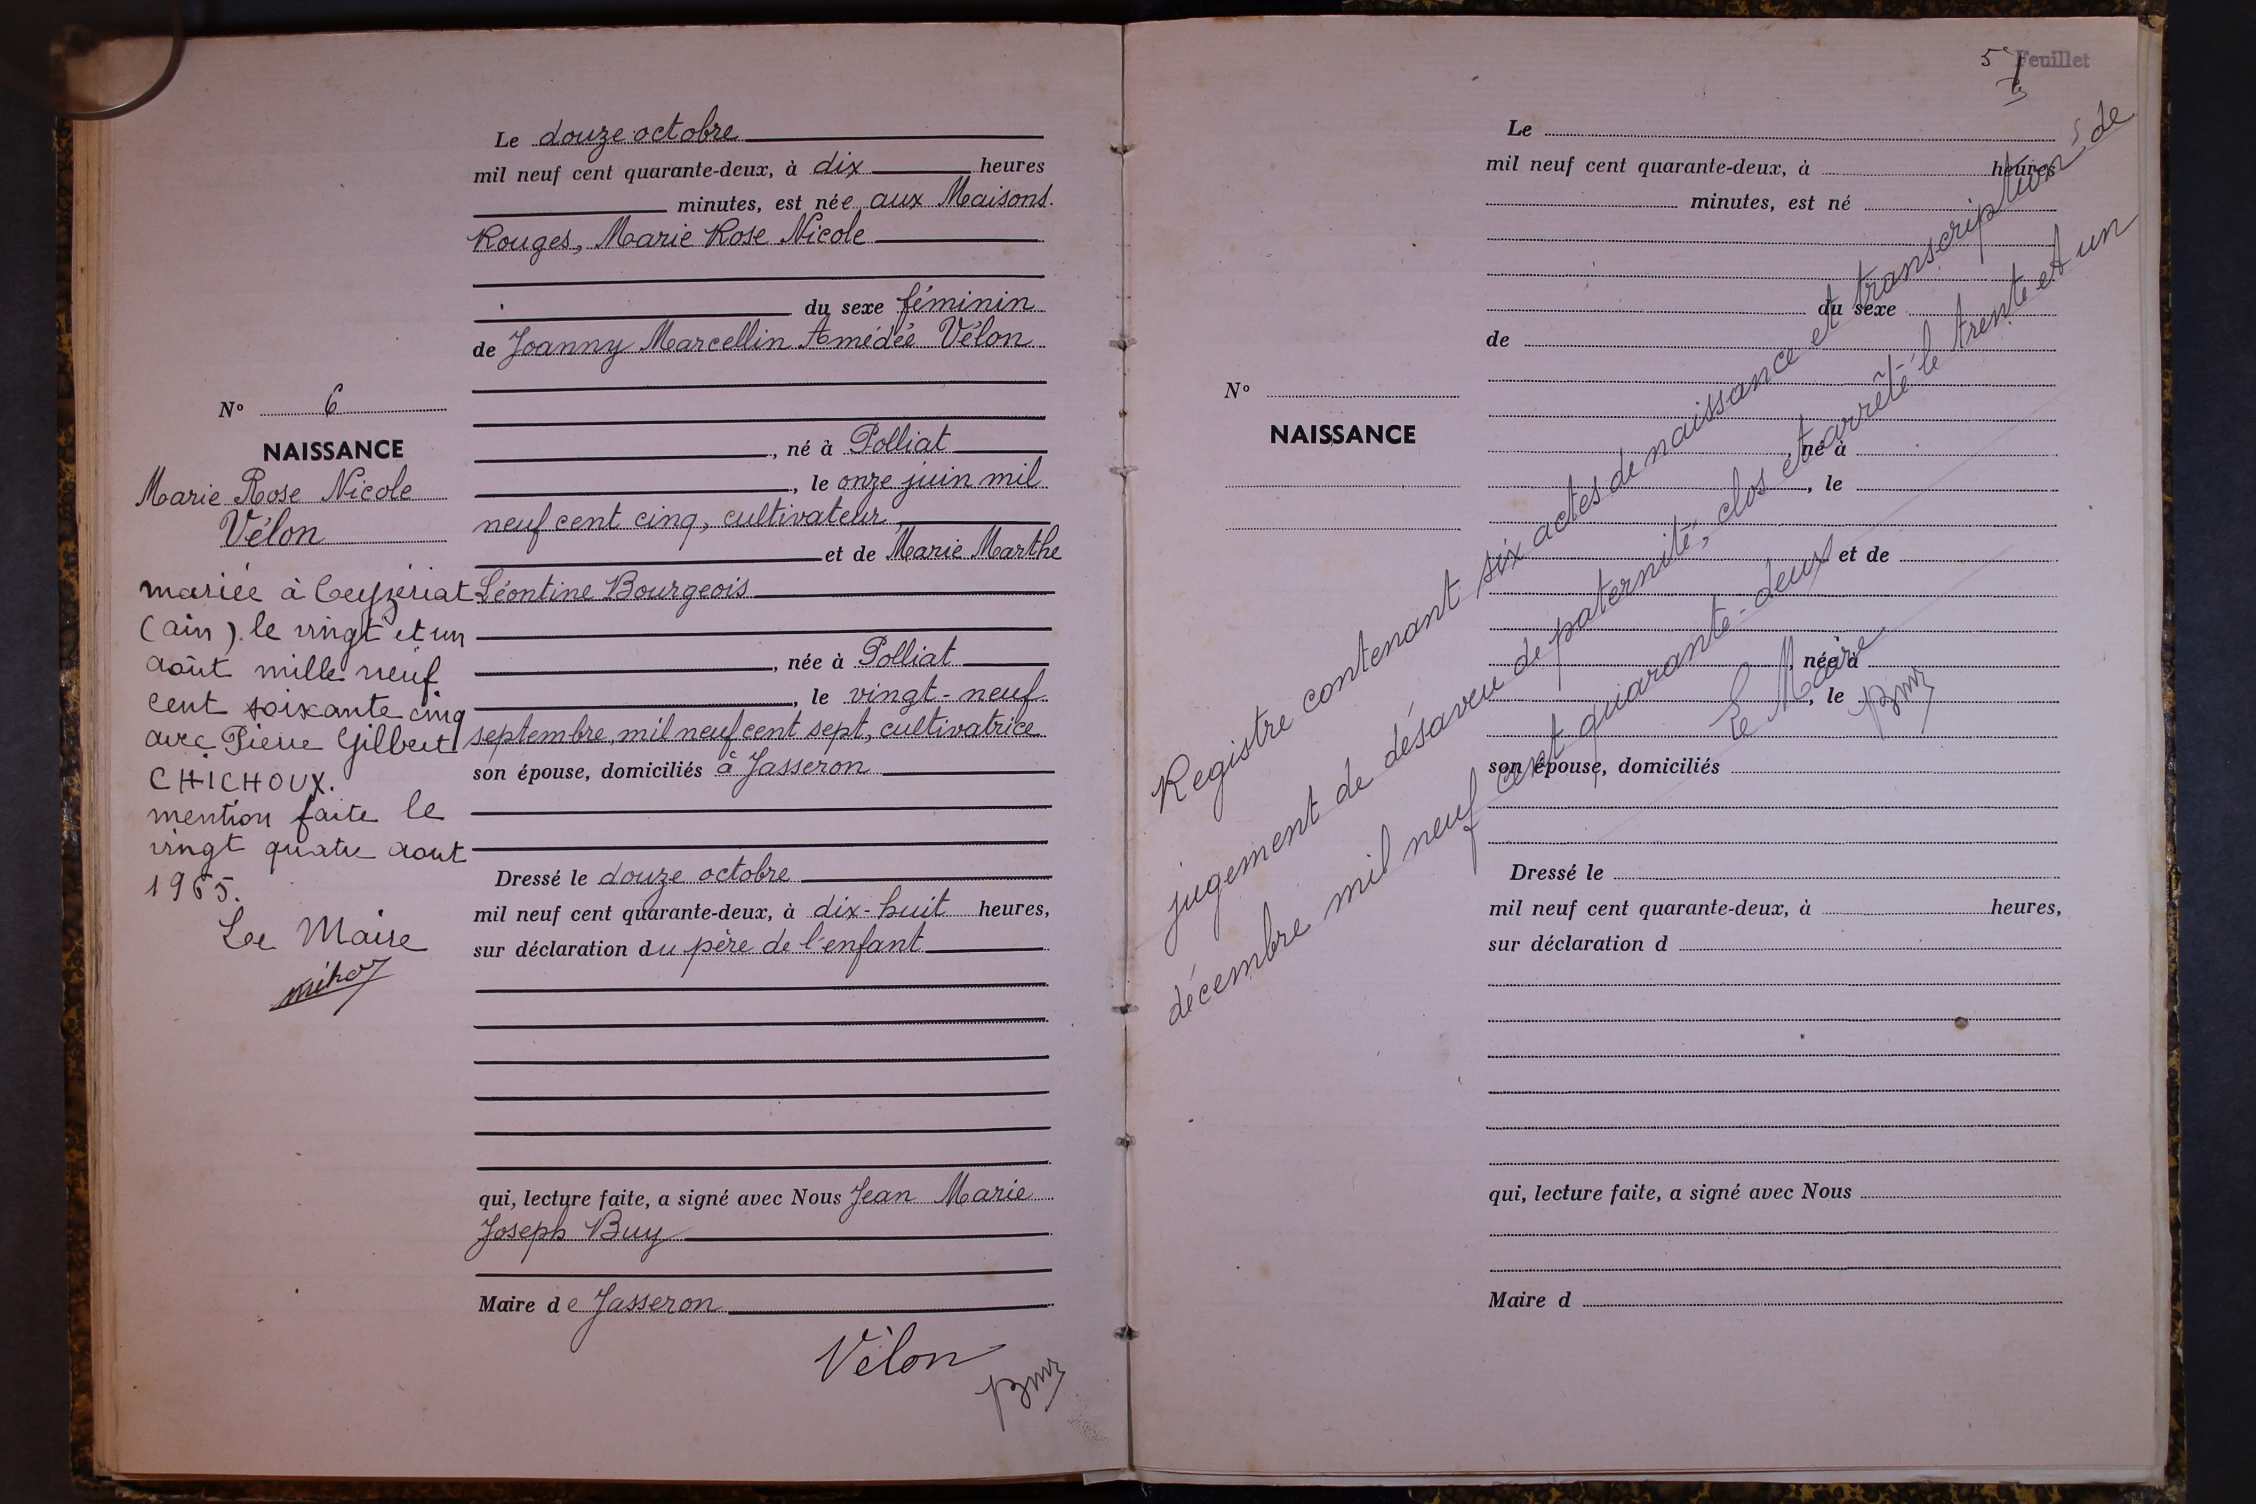 N° 6
NAISSANCE
Marie Rose Nicole
Vélon
mariée à Ceyzériat
(ain). le vingt et un
août mille neuf
cent soixante cinq
avec Pierre Gilbert
CHICHOUX.
mention faite le
vingt quatre aout
1965.
Le Maire
Le douze octobre
mil neuf cent quarante-deux, à dix heures
minutes, est née aux Maisons
Rouges, Marie Rose Nicole
du sexe féminin
de Joanny Marcellin Amédée Vélon
, né à Polliat
, le onze juin mil
neuf cent cinq, cultivateur,
et de Marie Marthe
Léontine Bourgeois
, née à Polliat
, le vingt-neuf
septembre, mil neuf cent sept, cultivatrice
son épouse, domiciliés à Jasseron
Dressé le douze octobre
mil neuf cent quarante-deux, à dix-huit heures,
sur déclaration du père de l'enfant
qui, lecture faite, a signé avec Nous Jean Marie
Joseph Buy
Maire de Jasseron
Vélon
Buy
5e Feuillet
N°
NAISSANCE
Le
mil neuf cent quarante-deux, à heures
minutes, est né
du sexe
de
, né à
, le
et de
, née à
, le
son épouse, domiciliés
Dressé le
mil neuf cent quarante-deux, à heures,
sur déclaration d
qui, lecture faite, a signé avec Nous
Maire d
Registre contenant six actes de naissance et transcriptions de
jugement de désaveu de paternité, clos et arrêté le trente et un
décembre mil neuf cent quarante-deux
Le Maire
Buy